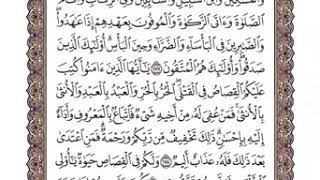 وَٱلْمَسَٰكِينَ وَٱبْنَ ٱلسَّبِيلِ وَٱلسَّآئِلِينَ وَفِى ٱلرِّقَابِ وَأَقَامَ
ٱلصَّلَوٰةَ وَءَاتَى ٱلزَّكَوٰةَ وَٱلْمُوفُونَ بِعَهْدِهِمْ إِذَا عَٰهَدُوا۟
وَٱلصَّٰبِرِينَ فِى ٱلْبَأْسَآءِ وَٱلضَّرَّآءِ وَحِينَ ٱلْبَأْسِ أُو۟لَٰٓئِكَ ٱلَّذِينَ
صَدَقُوا۟ وَأُو۟لَٰٓئِكَ هُمُ ٱلْمُتَّقُونَ ۝ يَٰٓأَيُّهَا ٱلَّذِينَ ءَامَنُوا۟ كُتِبَ
عَلَيْكُمُ ٱلْقِصَاصُ فِى ٱلْقَتْلَى ٱلْحُرُّ بِٱلْحُرِّ وَٱلْعَبْدُ بِٱلْعَبْدِ وَٱلْأُنثَىٰ
بِٱلْأُنثَىٰ فَمَنْ عُفِىَ لَهُۥ مِنْ أَخِيهِ شَىْءٌ فَٱتِّبَاعٌۢ بِٱلْمَعْرُوفِ وَأَدَآءٌ
إِلَيْهِ بِإِحْسَٰنٍ ذَٰلِكَ تَخْفِيفٌ مِّن رَّبِّكُمْ وَرَحْمَةٌ فَمَنِ ٱعْتَدَىٰ
بَعْدَ ذَٰلِكَ فَلَهُۥ عَذَابٌ أَلِيمٌ ۝ وَلَكُمْ فِى ٱلْقِصَاصِ حَيَوٰةٌ يَٰٓأُو۟لِى